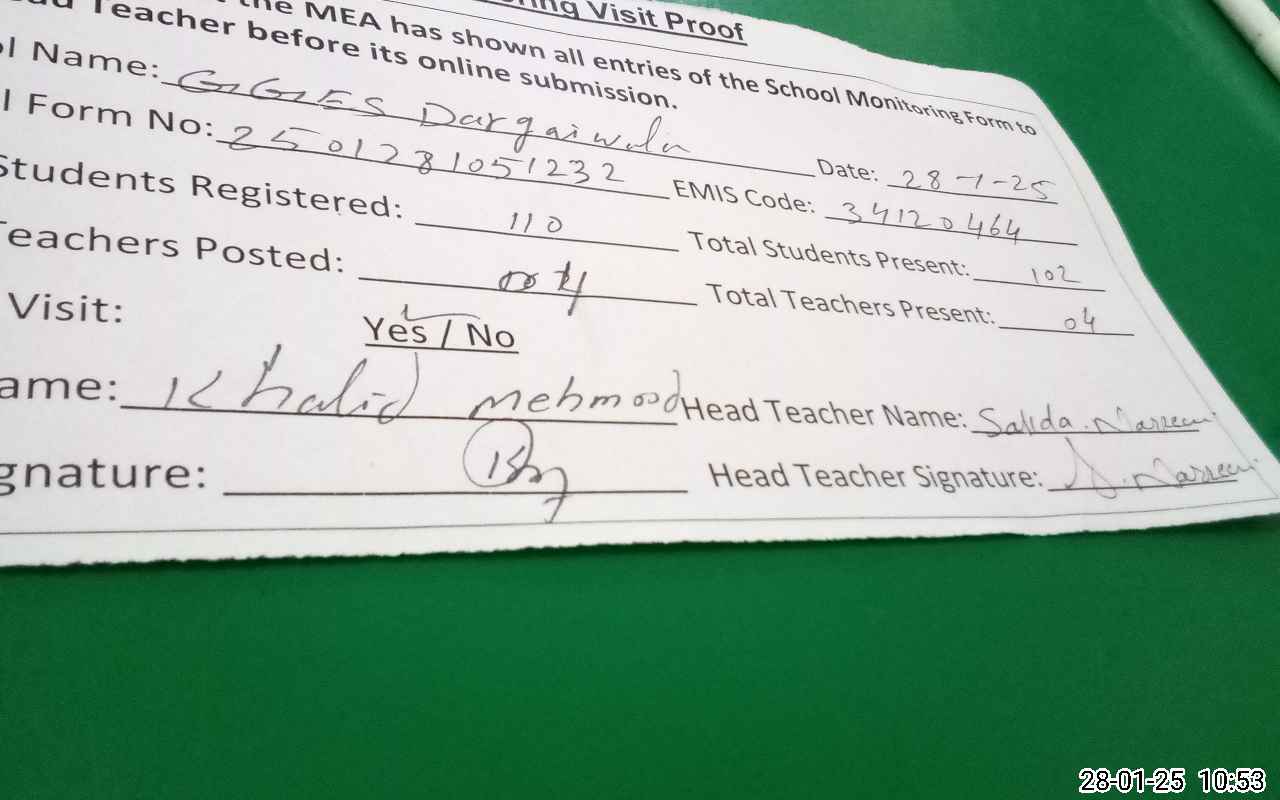 ring Visit Proof
the MEA has shown all entries of the School Monitoring Form to
ad Teacher before its online submission.
ol Name: GGES Dargaiwala
Date: 28-1-25
l Form No: 2501281051232
EMIS Code: 34120464
Students Registered: 110
Total Students Present: 102
Teachers Posted: 04
Total Teachers Present: 04
Visit: Yes / No
ame: Khalid Mehmood
Head Teacher Name: Nasreen
gnature:
Head Teacher Signature: Nasreen
28-01-25 10:53